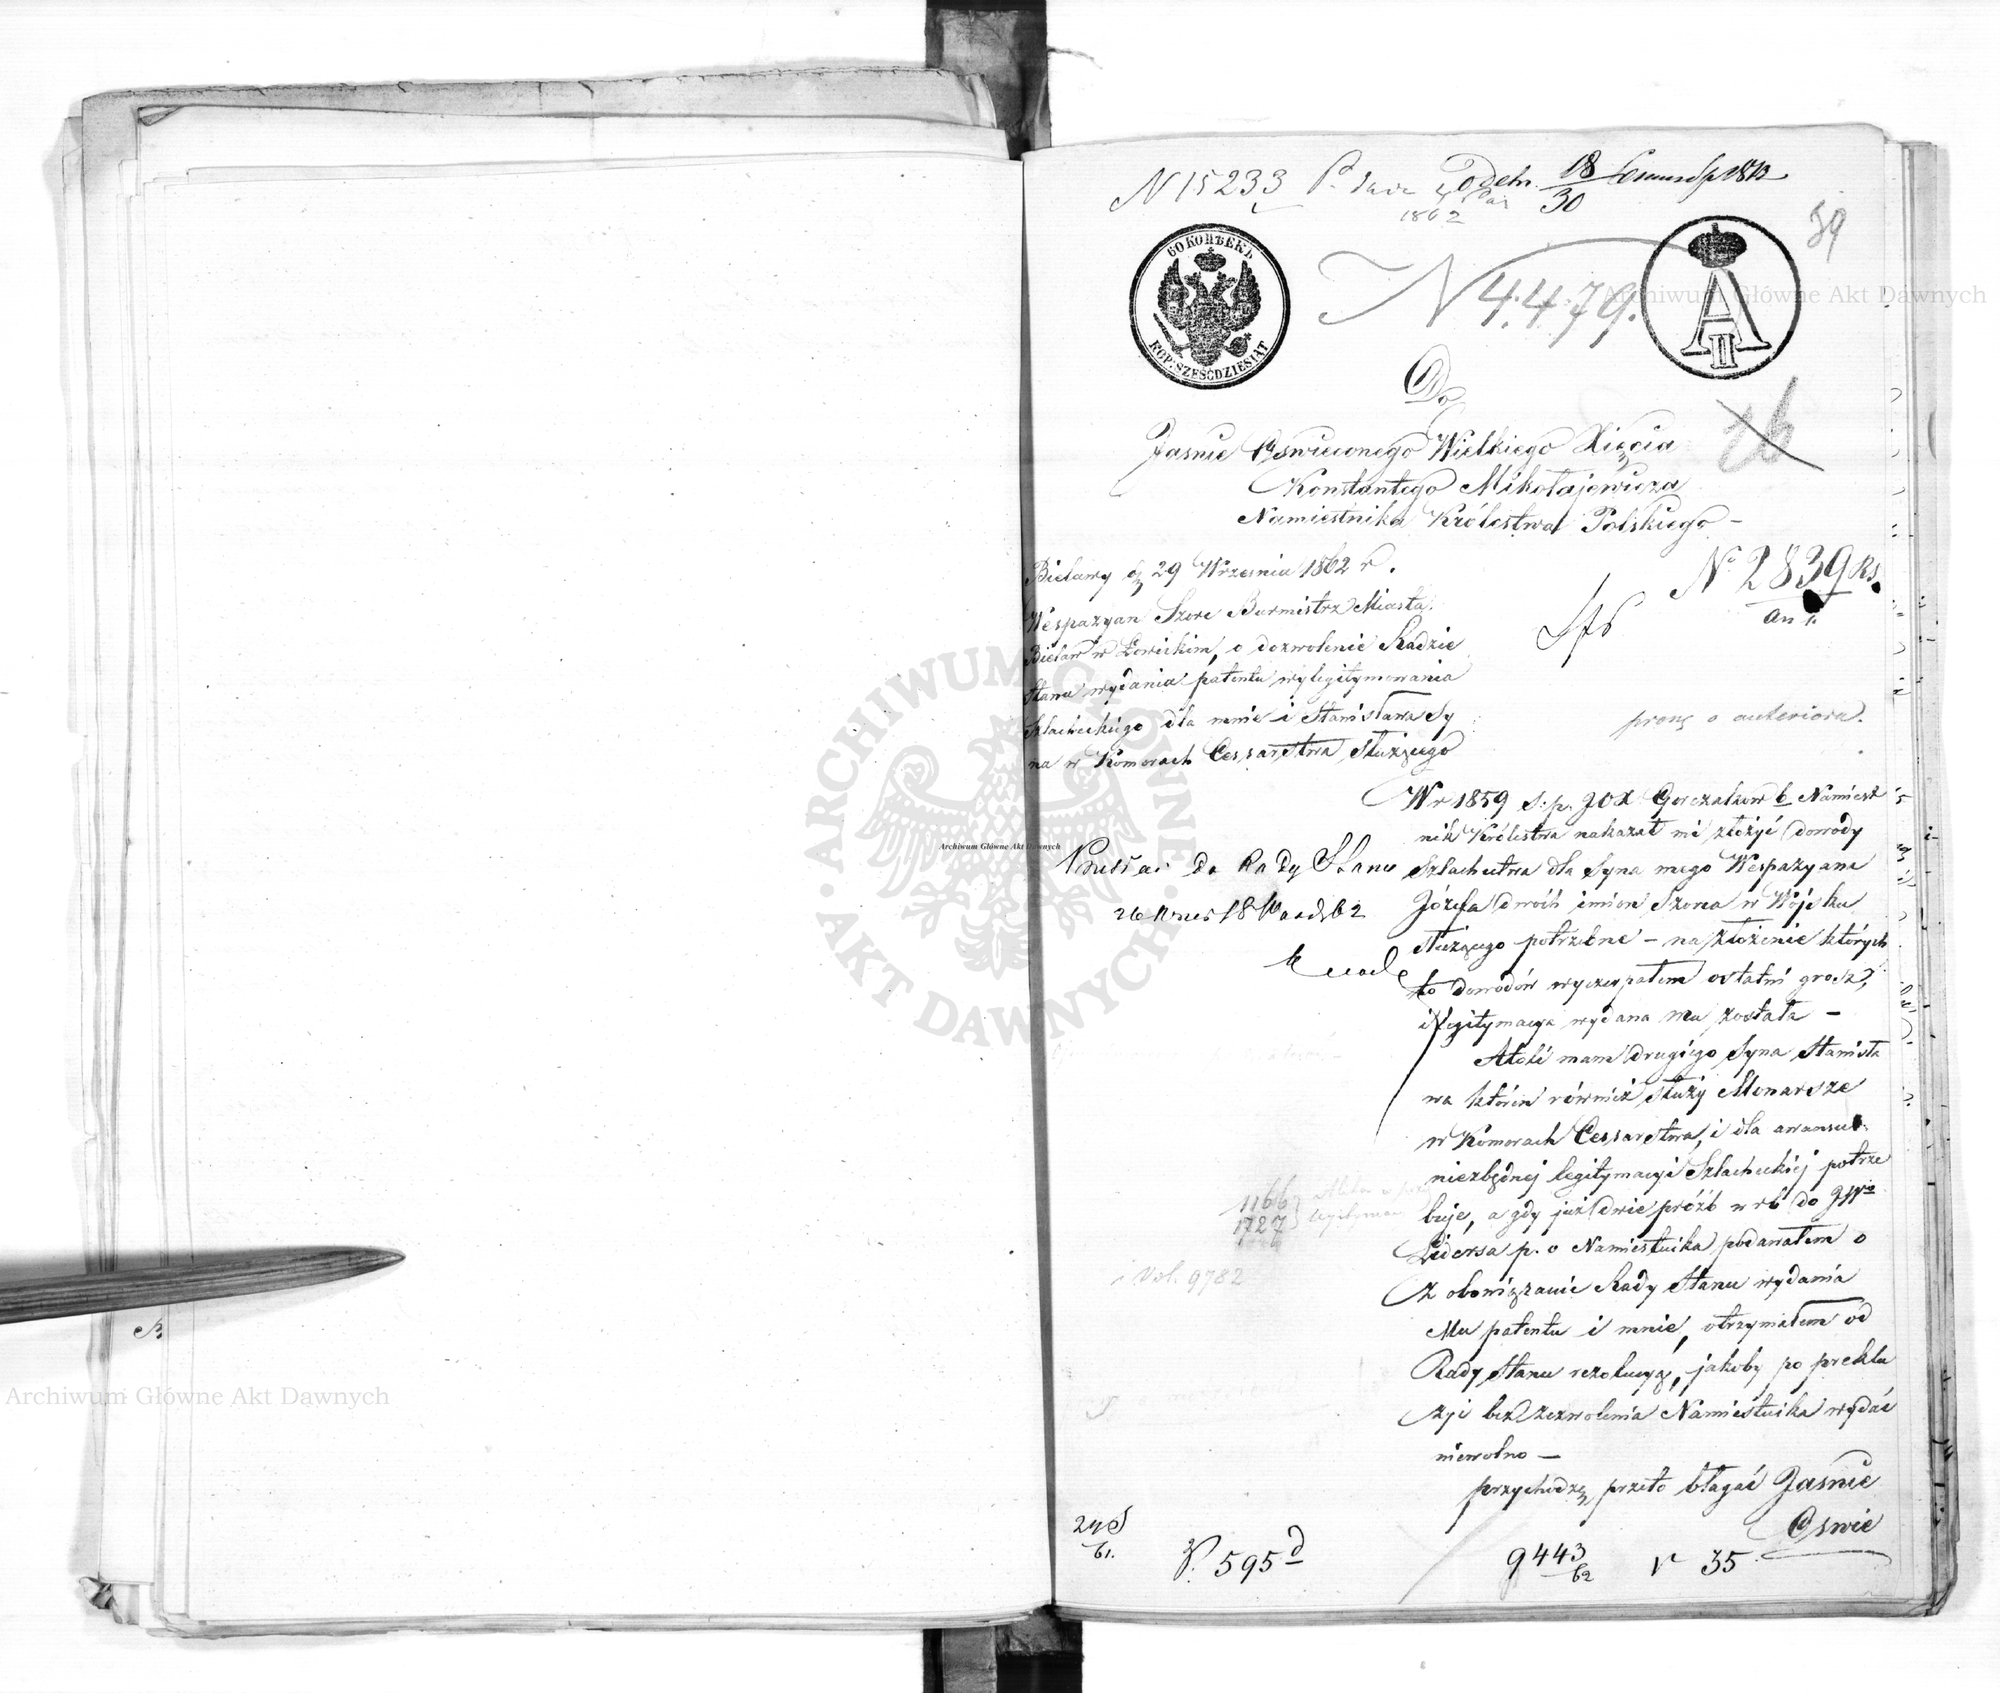 N 15233
1862
18
30
39
60 КОПѢЕКЪ
KOP: SZEŚĆDZIESIĄT
N 4479.
A II
Do
Jaśnie Oświeconego Wielkiego Xięcia
Konstantego Mikołajewicza
Namiestnika Królestwa Polskiego –
Bielawy d. 29 Września 1862 r.
No 2839
Wespazyan Szorc Burmistrz Miasta
Bielaw w Łowickim, o dozwolenie Radzie
Stanu wydania patentu wylegitymowania
Szlacheckiego dla mnie i Stanisława Sy
na w Komorach Cessarstwa służącego
proszę o anteriora.
W r 1859 ś. p. JOX Gorczakow b. Namiest
nik Królestwa nakazał mi złożyć dowody
Szlachectwa dla Syna mego Wespazyana
Józefa dwóch imion Szorca w Wojsku
służącego potrzebne – na złożenie których
to dowodów wyczerpałem ostatni grosz,
i legitymacya wydana mu została –
do Rady Stanu
Atoli mam drugiego Syna Stanisła
wa którén również służy Monarsze
w Komorach Cessarstwa, i dla awansu
niezbędnej legitymacyi Szlacheckiej potrze
buje, a gdy już dwie próźb w rb do JW
Lidersa p. o Namiestnika podawałem o
zobowiązanie Rady Stanu wydania
Mu patentu i mnie, otrzymałem od
Rady Stanu rezolucyą, jakoby po preklu
zji bez zezwolenia Namiestnika wydać
niewolno –
przychodzę przeto błagać Jaśnie
Oświe
1166
1727
i Vol. 9782
24
61.
595
9443
62
35
Archiwum Główne Akt Dawnych
ARCHIWUM GŁÓWNE
AKT DAWNYCH
Archiwum Główne Akt Dawnych
Archiwum Główne Akt Dawnych